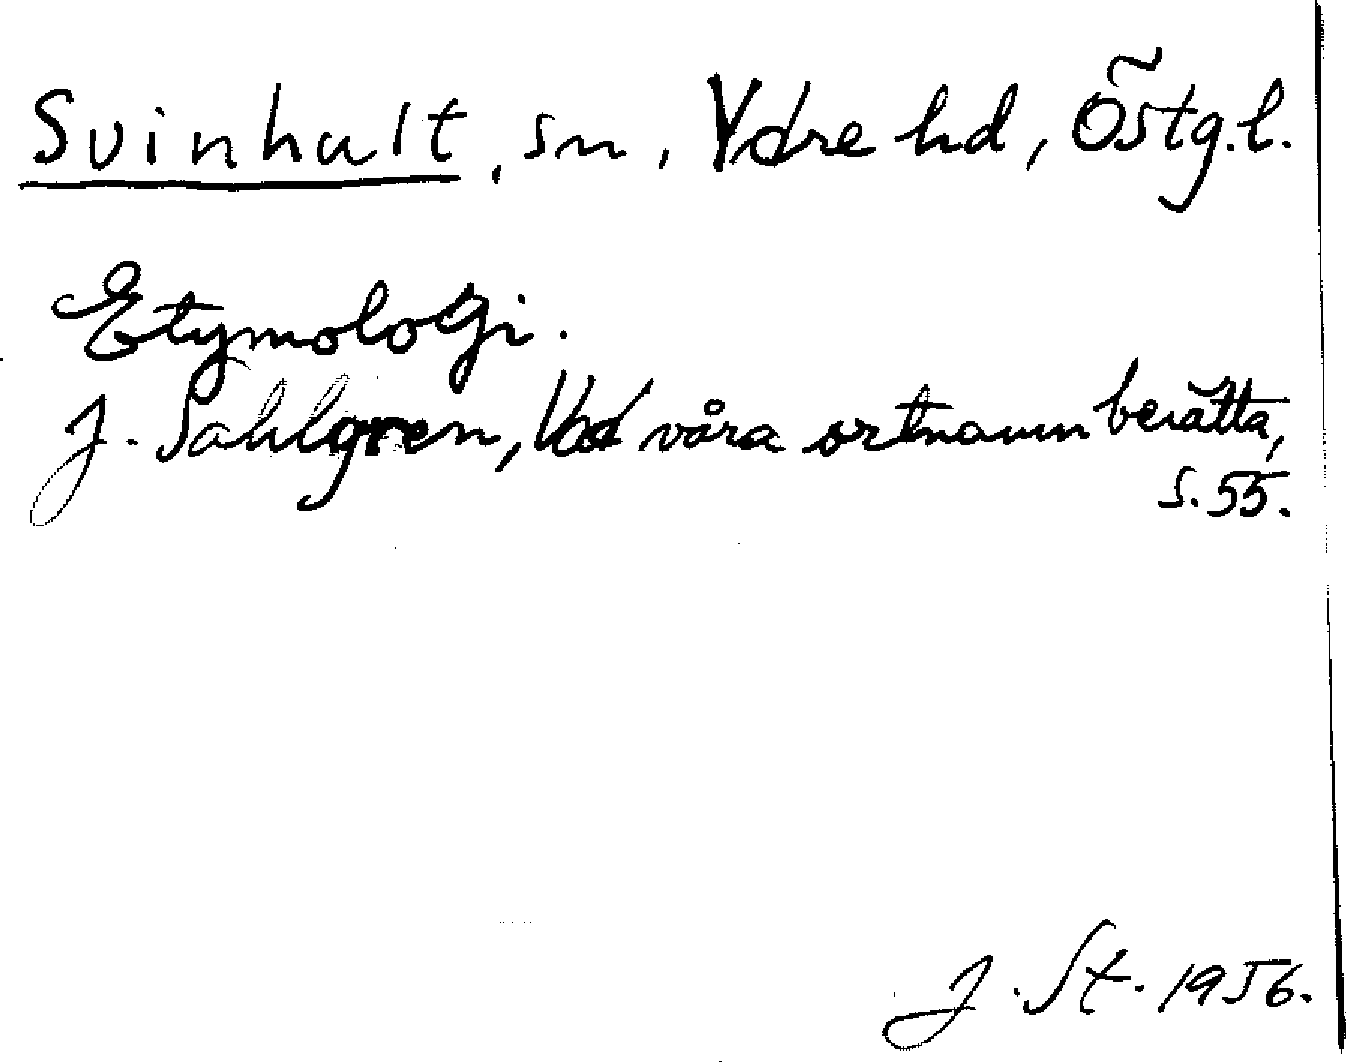 Svinhult, sn, Ydre hd, Östg.l.
Etymologi.
J. Sahlgren, Vad våra ortnamn berätta,
s. 55.
J. St. 1956.